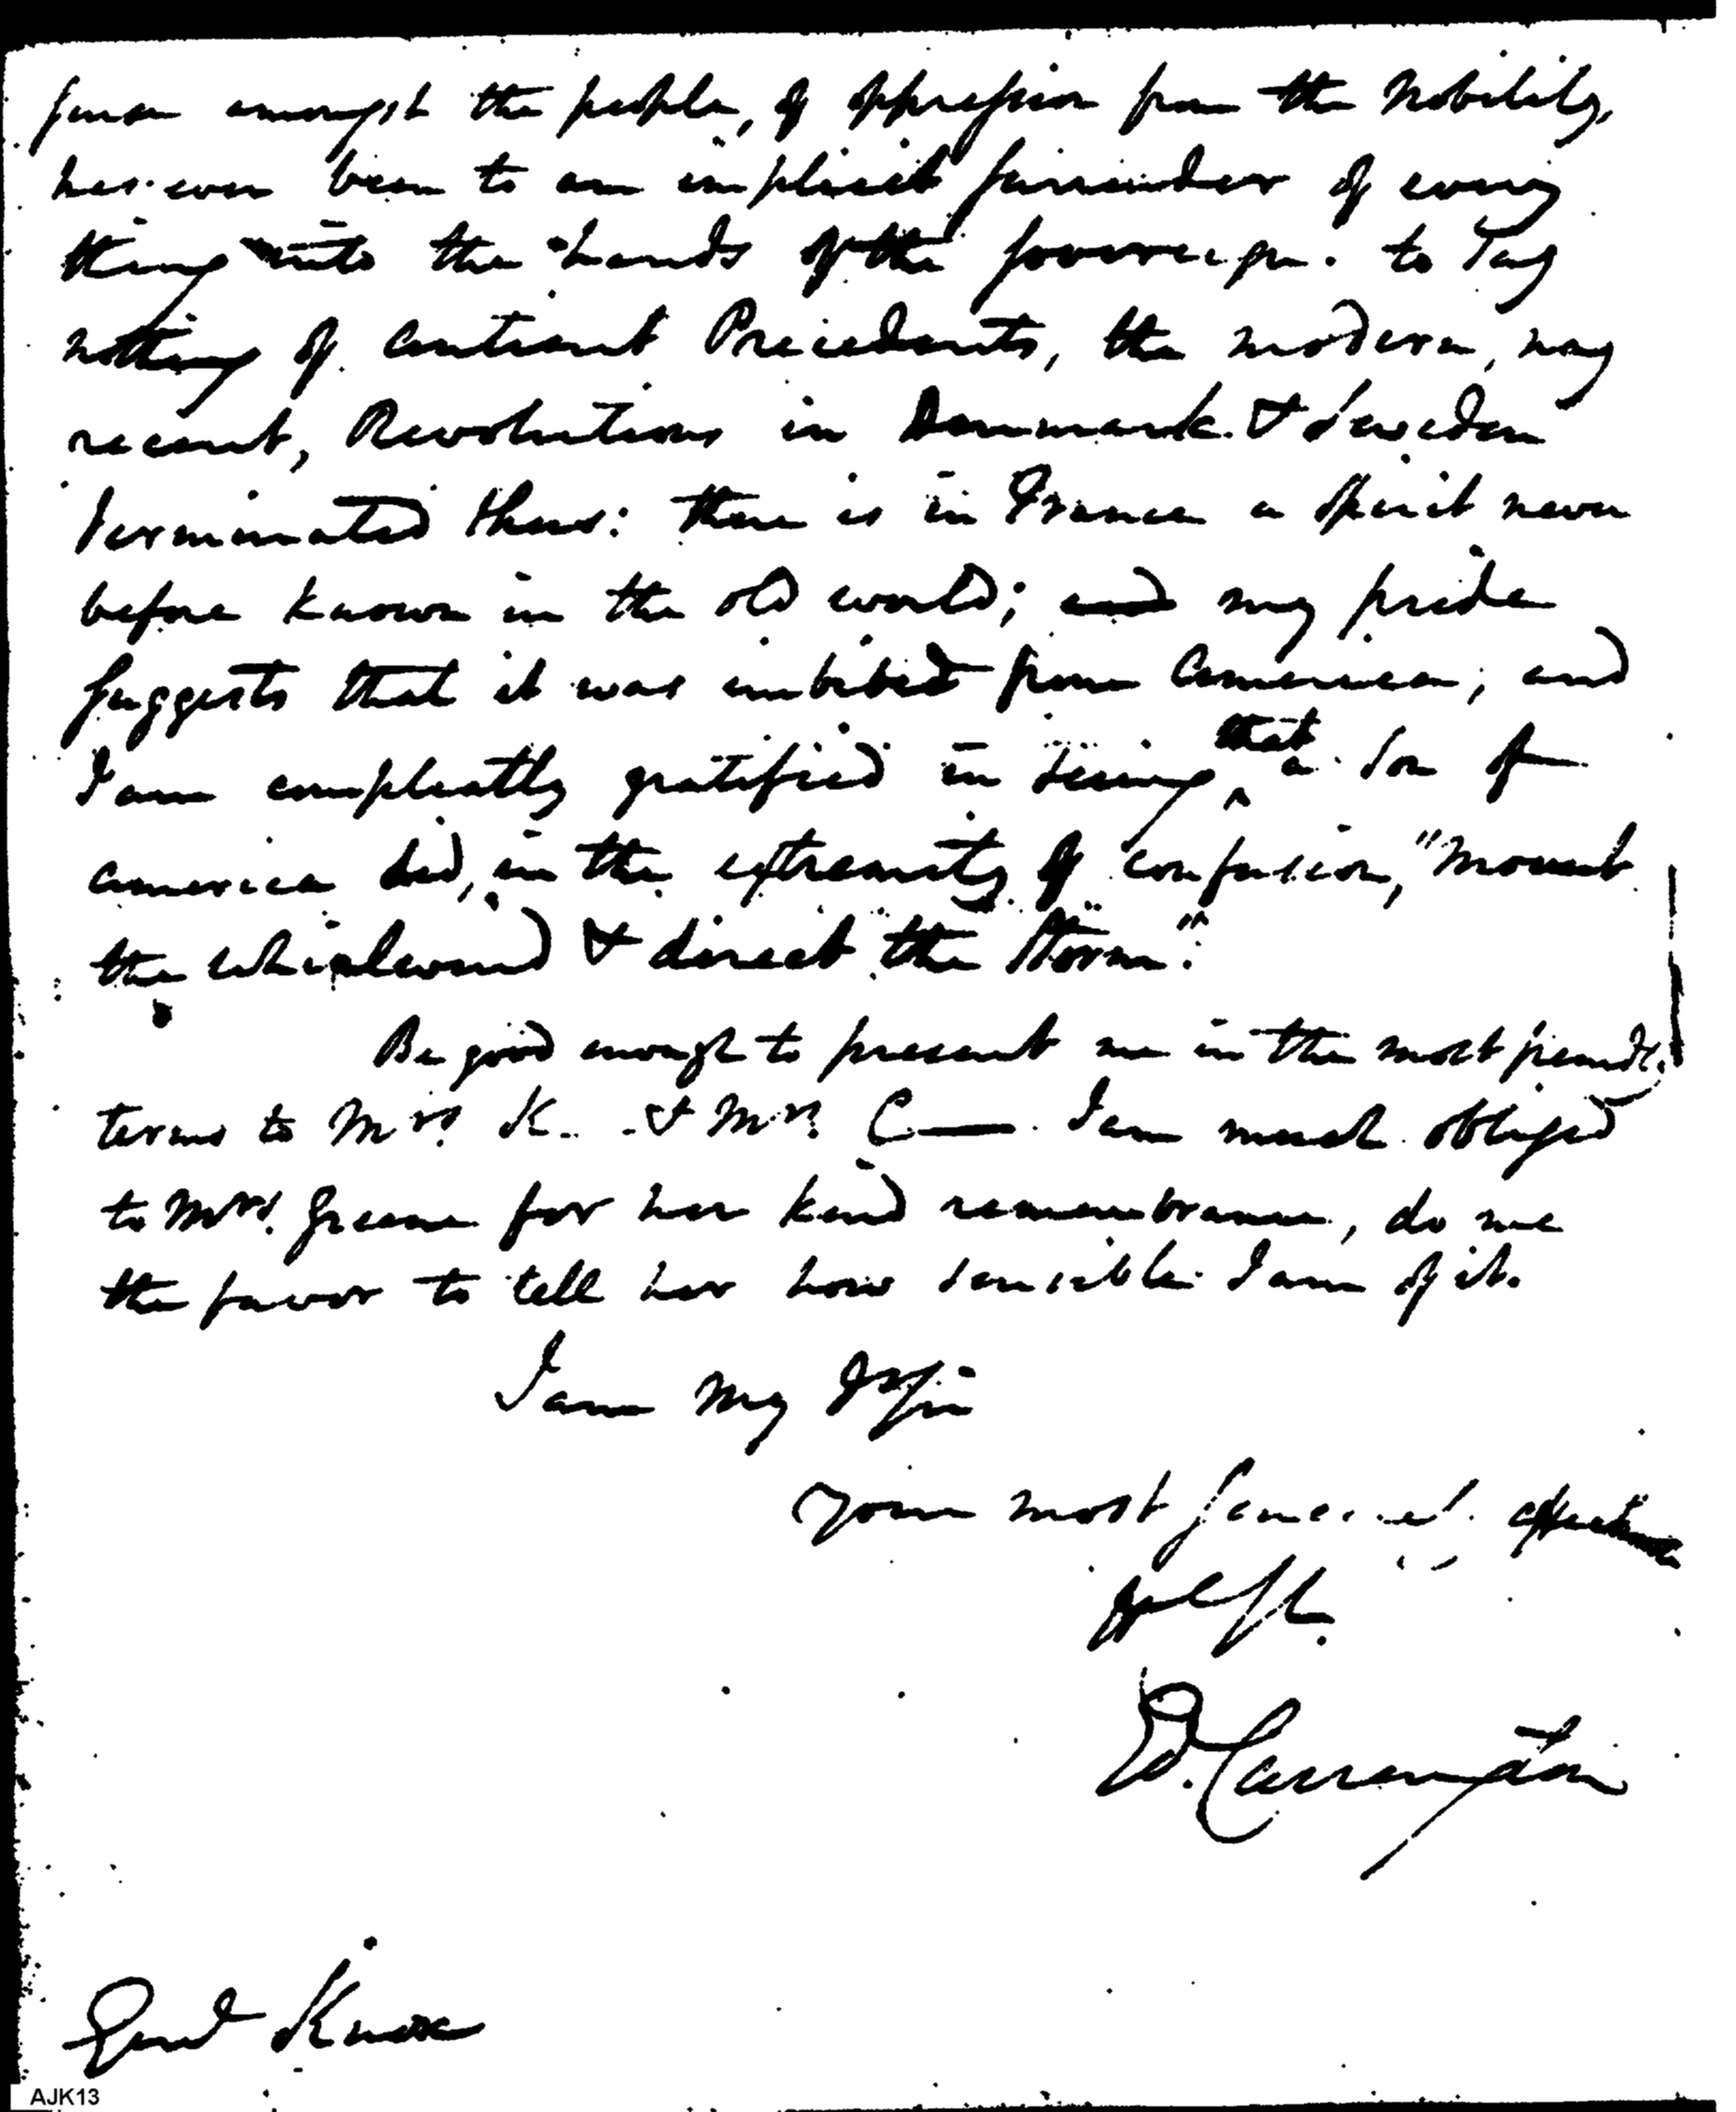 sense amongst the people, of oppression from the Nobility,
has ever been to an implicit surrender of every
thing into the hands of the sovereign. to say
nothing of antient Precedents, the modern, nay
recent, Revolutions in Denmark & Sweden
terminated thus: there is in France a spirit never
before known in the old world; and my pride
suggests that it was imbibed from America; and
I am compleatly gratified in seeing that a son of
america did, in the extremity of confusion, "mount
the whirlwind & direct the storm."
Be good enough to present me in the most friendly
terms to Mrs. K. & Mrs. C— I am much obliged
to Mrs. Greene for her kind remembrance, do me
the favor to tell her how sensible I am of it.
I am My D Sir
your most
Hble St.
Ed. Carrington
Genl Knox
AJK13